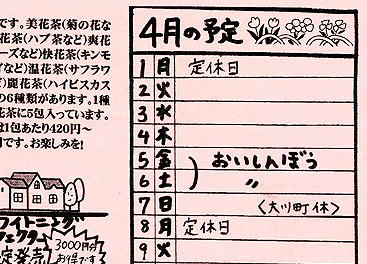 です。美花茶(菊の花な
花茶(ハブ茶など)爽花
ーズなど)快花茶(キンモ
など)温花茶(サフラワ
)麗花茶(ハイビスカス
の6種類があります。1種
花茶に5包入っています。
は1包あたり420円〜
です。お楽しみを!
ライトニング
フェクター
定発売!
3000円分
お得です
4月の予定
1 月 定休日
2 火
3 水
4 木
5 金 おいしんぼう
6 土 〃
7 日 〈大川町休〉
8 月 定休日
9 火